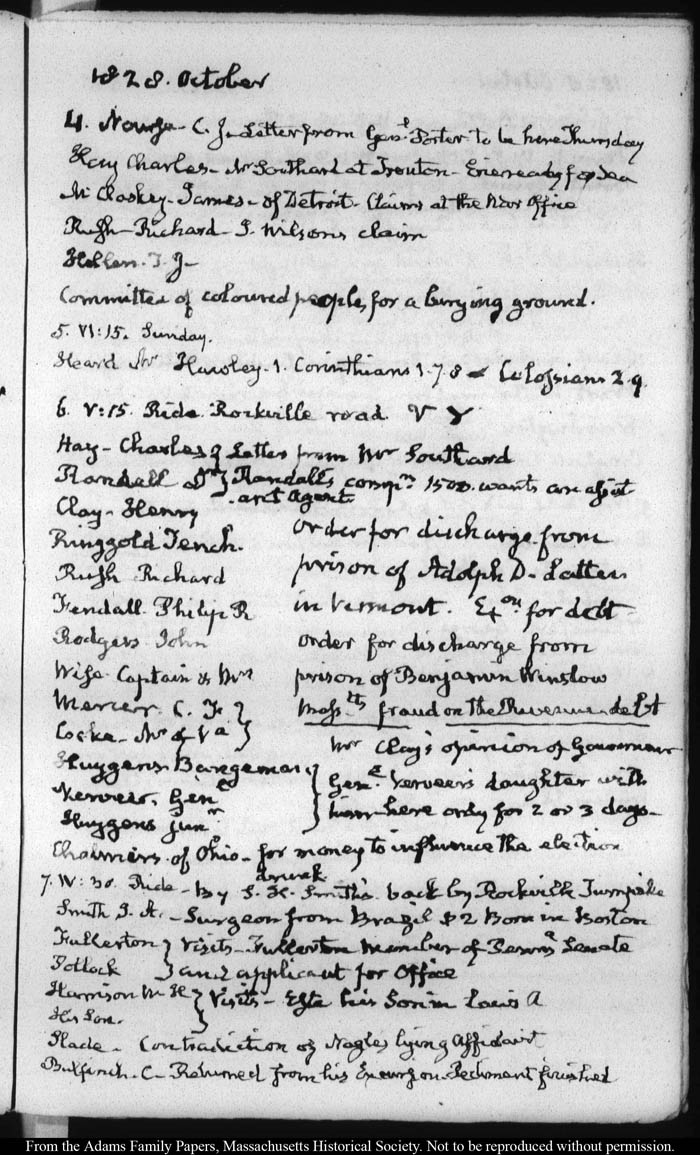 1828. October
4. Nourse C. J. Letter from Genl. Porter to be here Thursday
Hay Charles - Mr Southard at Trenton - ready for Sea
McCloskey - James - of Detroit - Claims at the War Office
Rush - Richard - J. Wilson's claim
T. J -
Committee of coloured people, for a burying ground.
5. VI:15. Sunday.
Heard Mr Hawley. 1. Corinthians 1. 7. 8 Colossians 2. 9.
6. V:15. Ride Rockville road.
Hay - Charles Letter from Mr Southard
Randall Randall's 1500. wants an assist
ant Agent
Clay - Henry
Order for discharge from
Ringgold Tench.
prison of Adolph D.
Rush Richard
in Vermont. Exon. for debt
Fendall Philip R
Order for discharge from
Rodgers John
prison of Benjamin Winslow
Wife Captain & Mrs
Masstts. fraud on the Revenue debt
Mercer C. F.
Mr of Va
Mr Clay's opinion of Gouverneur
Huygens Bangeman
Genl. Verveer's daughter with
Verveer. Genl
him here only for 2 or 3 days -
Huygens junr
Chalmers of Ohio - for money to influence the election
drunk
7. IV:30. Ride - By S. H. Smith's back by Rockville Turnpike
Smith J. A. - Surgeon from Brazil Born in Boston
Fullerton Visits - Fullerton Member of Pennsa Senate
Pollock and applicant for Office
Harrison W. H Visits - his Son in Law's
His Son.
Slade - Contradiction of Nagle's lying Affidavit
Bulfinch. C - Returned from his Excursion. Pediment finished
From the Adams Family Papers, Massachusetts Historical Society. Not to be reproduced without permission.